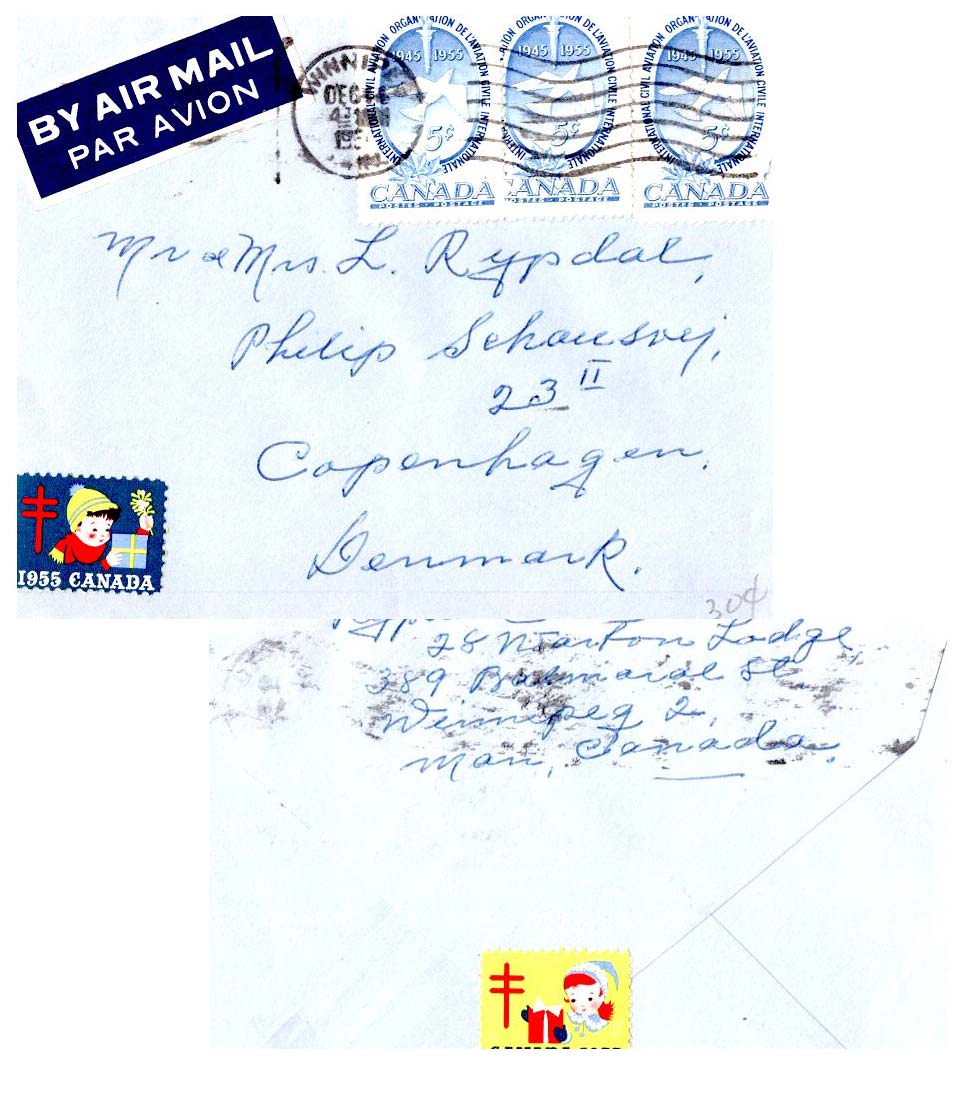 BY AIR MAIL
PAR AVION
WINNIPEG
DEC
195
INTERNATIONAL CIVIL AVIATION ORGANIZATION ORGANISATION DE L'AVIATION CIVILE INTERNATIONALE
1945 1955
5¢
CANADA
POSTES - POSTAGE
INTERNATIONAL CIVIL AVIATION ORGAN ATION DE L'AVIATION CIVILE INTERNATIONALE
1945 1955
5¢
CANADA
POSTES - POSTAGE
INTERNATIONAL CIVIL AVIATION ORGAN ATION DE L'AVIATION CIVILE INTERNATIONALE
1945 1955
5¢
CANADA
POSTES - POSTAGE
Mr & Mrs. L. Rypdal,
Philip Schousvej,
23 II
Copenhagen.
Denmark.
1955 CANADA
30¢
28 Lodge,
389 Balmoral St
Winnipeg 2,
Man, Canada.
CANADA 1955